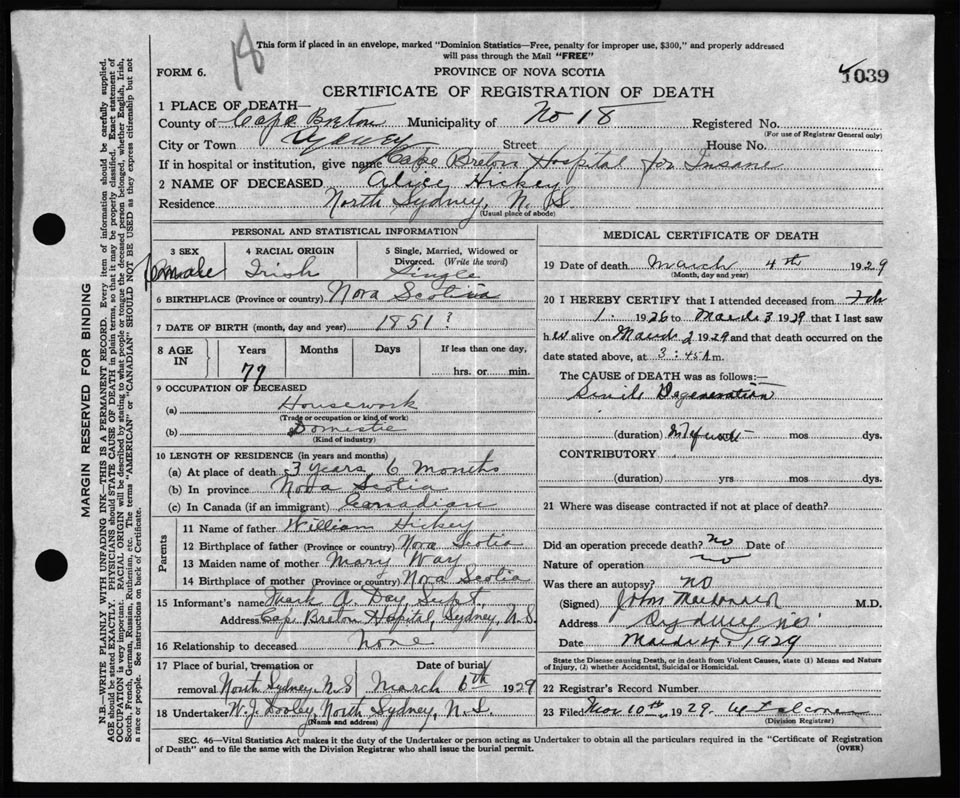 18
This form if placed in an envelope, marked "Dominion Statistics—Free, penalty for improper use, $300," and properly addressed
will pass through the Mail "FREE"
FORM 6.
PROVINCE OF NOVA SCOTIA
1039
CERTIFICATE OF REGISTRATION OF DEATH
1 PLACE OF DEATH—
County of Cape Breton Municipality of No 18 Registered No.
(For use of Registrar General only)
City or Town Sydney Street House No.
If in hospital or institution, give name Cape Breton Hospital for Insane
2 NAME OF DECEASED Alice Hickey
Residence North Sydney, N. S.
(Usual place of abode)
PERSONAL AND STATISTICAL INFORMATION
3 SEX
Female
4 RACIAL ORIGIN
Irish
5 Single, Married, Widowed or
Divorced. (Write the word)
Single
6 BIRTHPLACE (Province or country) Nova Scotia
7 DATE OF BIRTH (month, day and year) 1851?
8 AGE
IN
Years
79
Months
Days
If less than one day,
hrs. or min.
9 OCCUPATION OF DECEASED
(a) Housework
(Trade or occupation or kind of work)
(b) Domestic
(Kind of industry)
10 LENGTH OF RESIDENCE (in years and months)
(a) At place of death 3 years, 6 months
(b) In province Nova Scotia
(c) In Canada (if an immigrant) Canadian
Parents
11 Name of father William Hickey
12 Birthplace of father (Province or country) Nova Scotia
13 Maiden name of mother Mary Way
14 Birthplace of mother (Province or country) Nova Scotia
15 Informant's name Mark A. Day Supt.
Address Cape Breton Hospital, Sydney, N.S.
16 Relationship to deceased None
17 Place of burial, cremation or
removal North Sydney, N.S
Date of burial
March 6th 1929
18 Undertaker W. J. Dooley, North Sydney, N. S.
(Name and address)
MEDICAL CERTIFICATE OF DEATH
19 Date of death March 4th 1929
(Month, day and year)
20 I HEREBY CERTIFY that I attended deceased from Feb
1. 1926 to March 3 1929 that I last saw
her alive on March 2 1929 and that death occurred on the
date stated above, at 3:45 A m.
The CAUSE OF DEATH was as follows:—
Senile Degeneration
(duration) mos dys.
CONTRIBUTORY
(duration) yrs mos dys.
21 Where was disease contracted if not at place of death?
Did an operation precede death? no Date of
Nature of operation no
Was there an autopsy? NO
(Signed) John Macdonald M.D.
Address Sydney NS
Date March 4, 1929
State the Disease causing Death, or in death from Violent Causes, state (1) Means and Nature
of Injury, (2) whether Accidental, Suicidal or Homicidal.
22 Registrar's Record Number
23 Filed Mar 10th, 1929. Falconer
(Division Registrar)
SEC. 46—Vital Statistics Act makes it the duty of the Undertaker or person acting as Undertaker to obtain all the particulars required in the "Certificate of Registration
of Death" and to file the same with the Division Registrar who shall issue the burial permit.
(OVER)
MARGIN RESERVED FOR BINDING
N.B.—WRITE PLAINLY WITH UNFADING INK—THIS IS A PERMANENT RECORD. Every item of information should be carefully supplied.
AGE should be stated EXACTLY. PHYSICIANS should STATE CAUSE OF DEATH in plain terms, so that it may be properly classified. Exact statement of
OCCUPATION is very important. RACIAL ORIGIN will be described by stating to what people or tongue the deceased person belonged, whether English, Irish,
Scotch, French, German, Russian, Ruthenian, etc. The terms "AMERICAN" or "CANADIAN" SHOULD NOT BE USED as they express citizenship but not
a race or people. See instructions on back of Certificate.